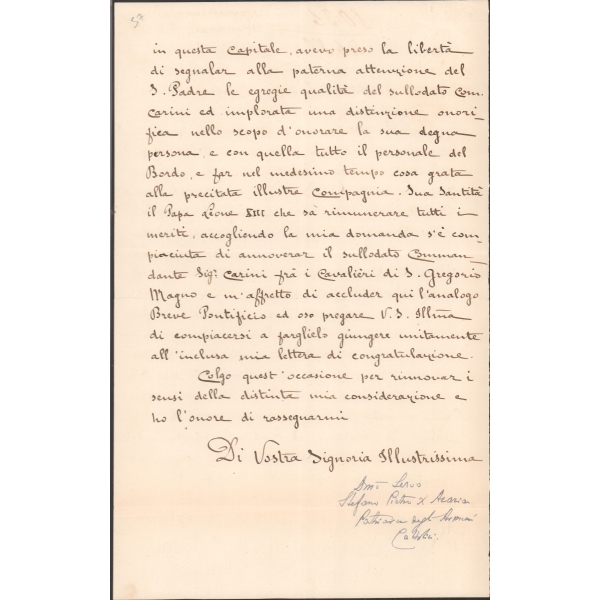 52
in questa Capitale, avevo preso la libertà
di segnalar alla paterna attenzione del
S. Padre le egregie qualità del sullodato Com.
Carini ed implorata una distinzione onori-
fica nello scopo d'onorare la sua degna
persona, e con quella tutto il personale del
Bordo, e far nel medesimo tempo cosa grata
alla precitata illustre Compagnia. Sua Santità
il Papa Leone XIII che sà rimunerare tutti i
meriti, accogliendo la mia domanda s'è com-
piaciuta di annoverar il sullodato Comman-
dante Sigr Carini frà i Cavalieri di S. Gregorio
Magno e m'affretto di accluder qui l'analogo
Breve Pontificio ed oso pregare V. S. Illma
di compiacersi a farglielo giungere unitamente
all'inclusa mia lettera di congratulazione.
Colgo quest'occasione per rinnovar i
sensi della distinta mia considerazione e
ho l'onore di rassegnarmi
Di Vostra Signoria Illustrissima
Dmo Servo
Stefano Pietro X Azarian
Patriarca degli Armeni
Cattolici